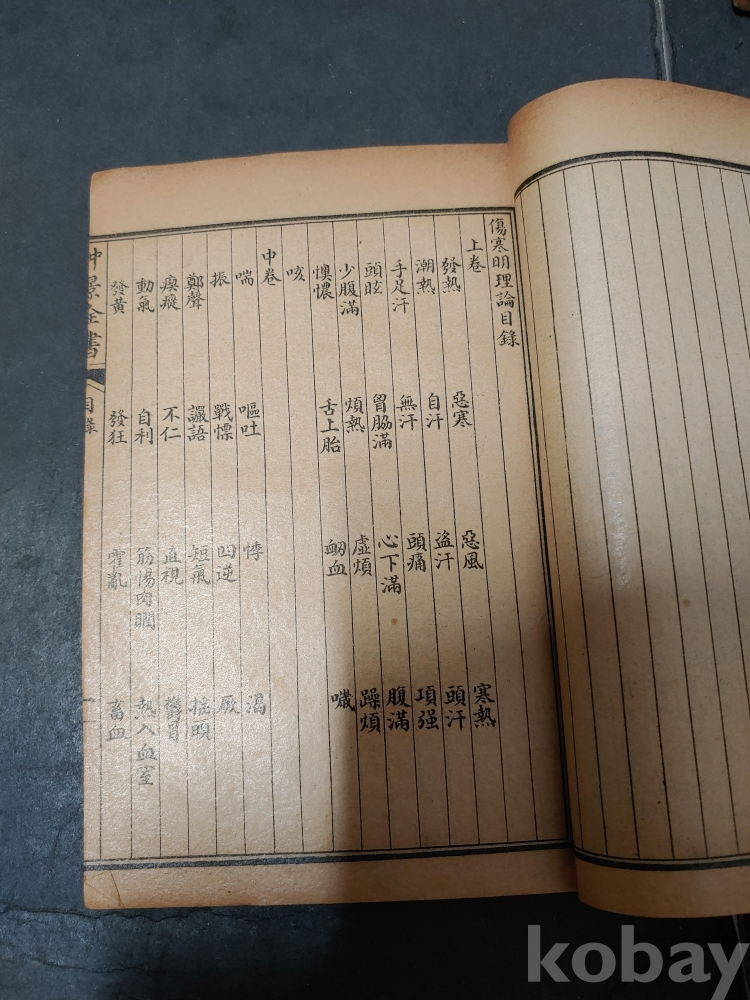 傷寒明理論目錄
上卷
發熱 惡寒 惡風 寒熱
潮熱 自汗 盜汗 頭汗
手足汗 無汗 頭痛 項强
頭眩 胷脇滿 心下滿 腹滿
少腹滿 煩熱 虛煩 躁煩
懊憹 舌上胎 衂血 噦
咳
中卷
喘 嘔吐 悸 渴
振 戰慄 四逆 厥
鄭聲 讝語 短氣 搖頭
瘈瘲 不仁 直視 鬱冒
動氣 自利 筋惕肉瞤 熱入血室
發黃 發狂 霍亂 畜血
仲景全書 目錄 一
kobay